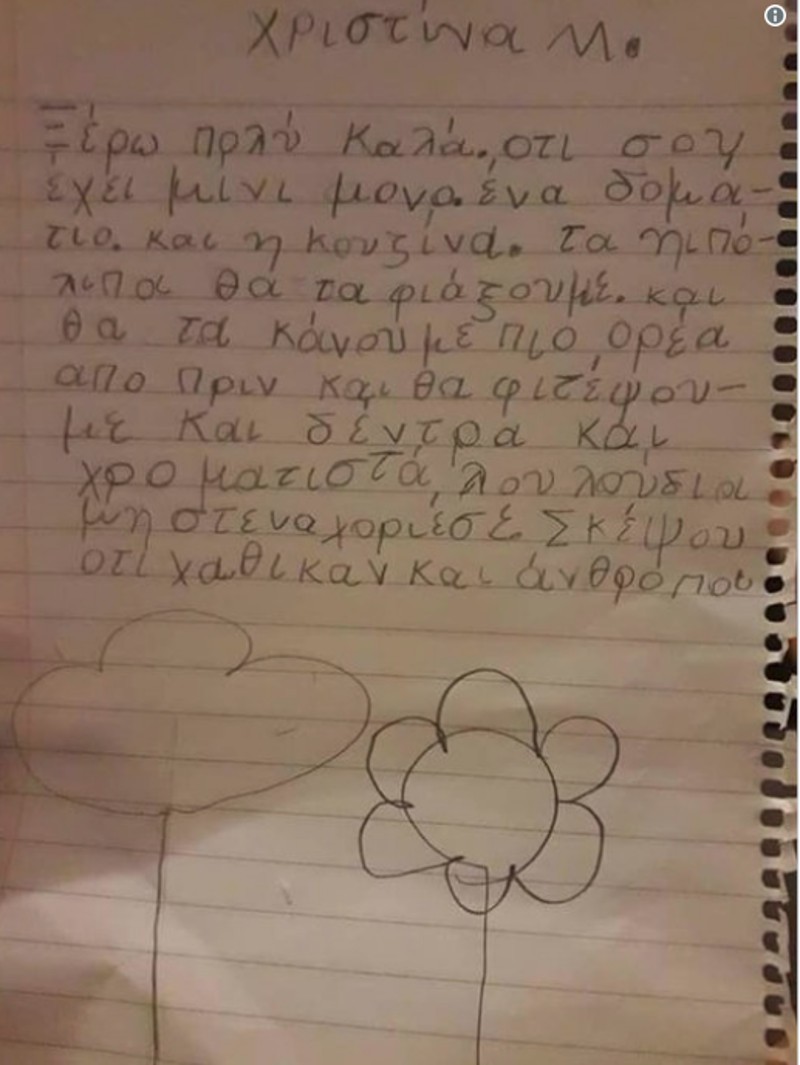 Χριστίνα Μ.
Ξέρω πολύ καλά., οτι σου
έχει μίνι μονο. ένα δομά-
τιο. και η κουζίνα. τα ηιπό-
λιπα θα τα φιάξουμε. και
θα τα κάνουμε πιο ορέα
απο πριν και θα φιτέψου-
με και δέντρα και
χροματιστά, λουλούδια
μη στεναχοριέσε Σκέψου
οτι χαθικαν και άνθρόποι